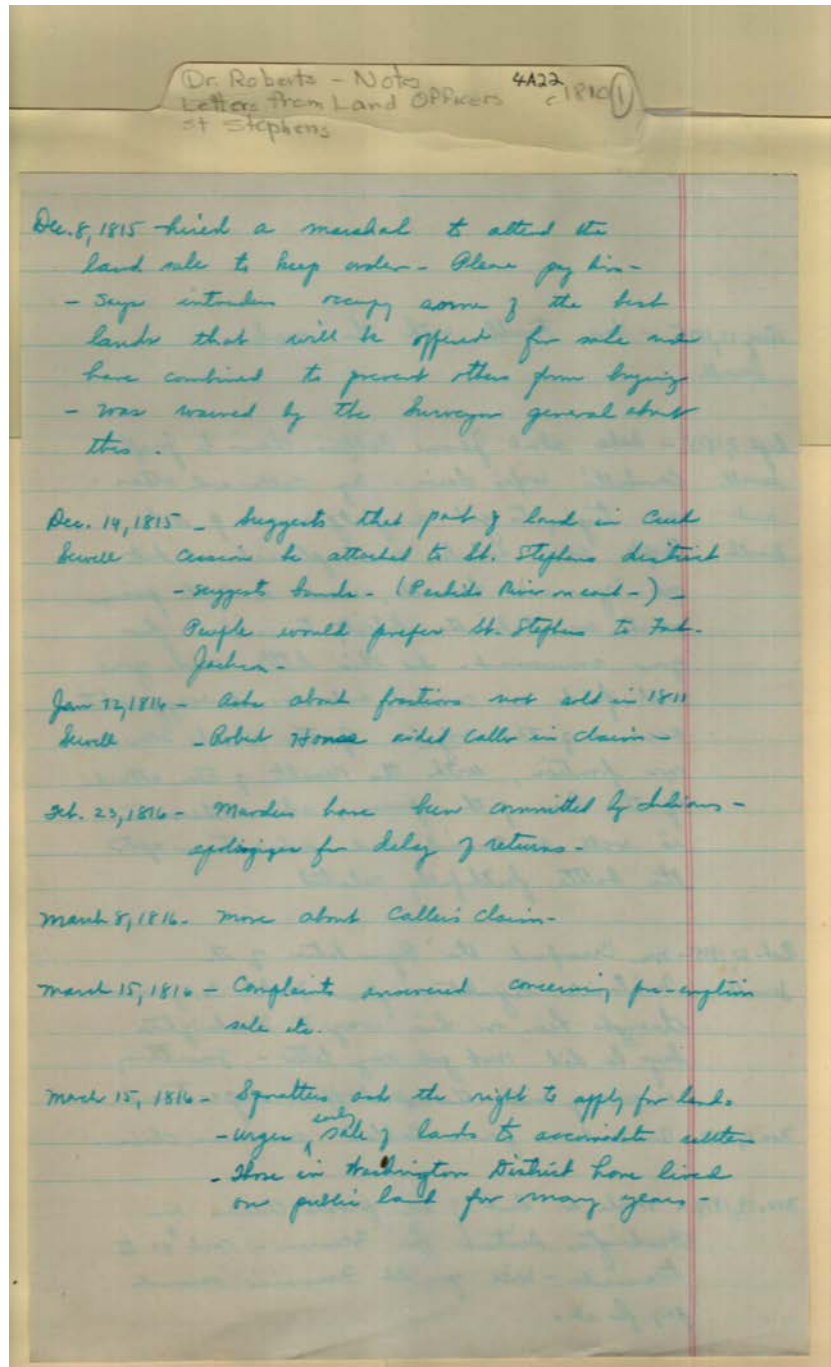 Dr. Roberts - Notes 4A22
Letters from Land Officers c 1810 1
St Stephens
Dec. 8, 1815 - hired a marshal to attend the
land sale to keep order - Please pay him -
- Says intruders occupy some of the best
lands that will be offered for sale and
have combined to prevent others from buying
- was warned by the Surveyor general about
this.
Dec. 14, 1815 - Suggests that part of land in Creek
Sewell cession be attached to St. Stephens district
- suggests bounds - (Perdido River on east -) -
People would prefer St. Stephens to Fort
Jackson -
Jan 12, 1816 - Asks about fractions not sold in 1811
Sewell - Robert House aided Caller in claim -
Feb. 23, 1816 - Murders have been committed by Indians -
apologizes for delay of returns -
March 8, 1816 - More about Caller's claim -
March 15, 1816 - Complaints answered concerning pre-emption
sale etc.
March 15, 1816 - Squatters ask the right to apply for lands
- urges early sale of lands to accomidate settlers
- Those in Washington District have lived
on public land for many years -